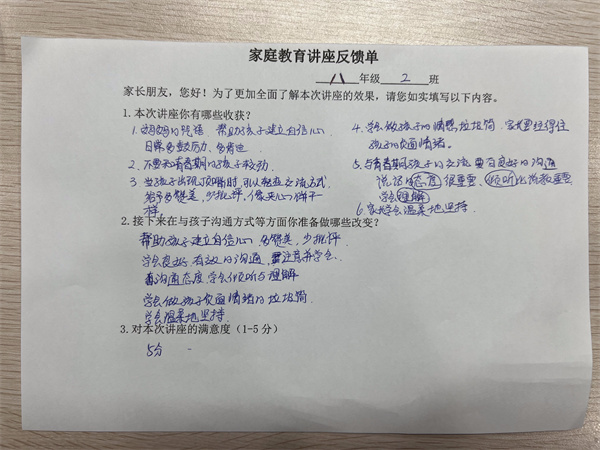 家庭教育讲座反馈单
八 年级 2 班
家长朋友，您好！为了更加全面了解本次讲座的效果，请您如实填写以下内容。
1. 本次讲座你有哪些收获？
1. 妈妈的唠叨 帮助孩子建立自信心
日常多鼓励，多肯定
2. 不要和青春期的孩子较劲。
3 当孩子出现顶嘴时，可以轻松交流方式
给予多赞美，少批评，像夹心饼干
一样。
4. 学会做孩子的情绪垃圾筒 家长要拉得住
孩子的负面情绪。
5. 与青春期孩子的交流 要有良好的沟通
说话的态度很重要，倾听比说教重要
学会理解
6. 家长学会温柔地坚持。
2. 接下来在与孩子沟通方式等方面你准备做哪些改变？
帮助孩子建立自信心 多赞美，少批评
学会良好，有效的沟通，注意并学会
沟通态度，学会倾听与理解
学会做孩子负面情绪的垃圾筒
学会温柔地坚持。
3. 对本次讲座的满意度（1-5 分）
5分